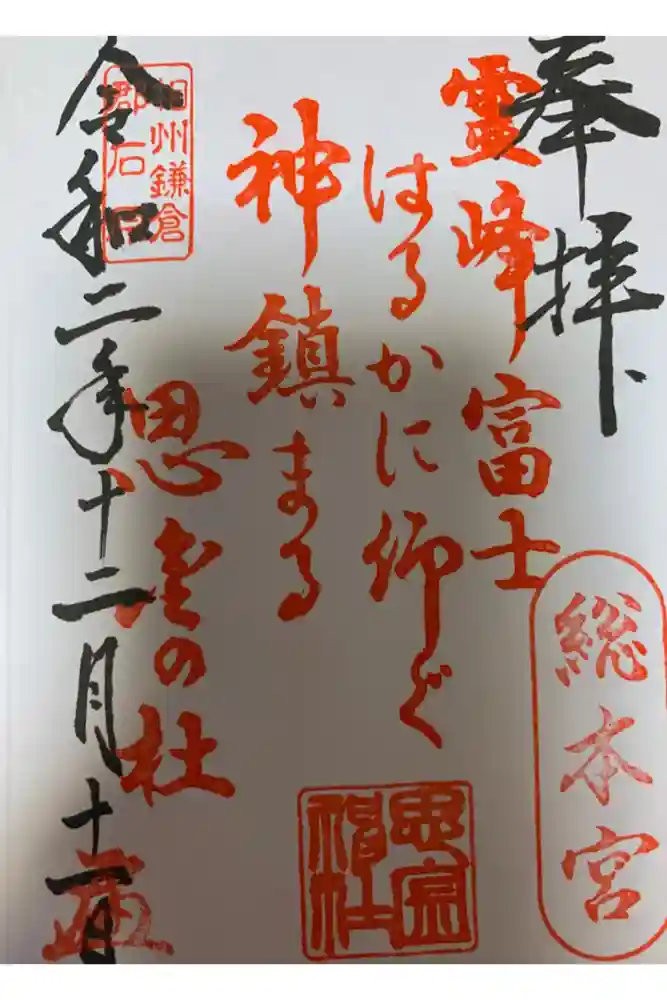 奉拝
靈峰富士
はるかに仰ぐ
神鎮まる
思金の杜
総本宮
思金
神社
相州鎌倉
郡石
令和二年十二月十一日